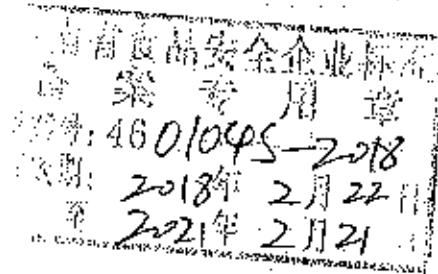 省食品安全企业标准
备案专用章
号:460104S-2018
期:2018年2月22日
至2021年2月21